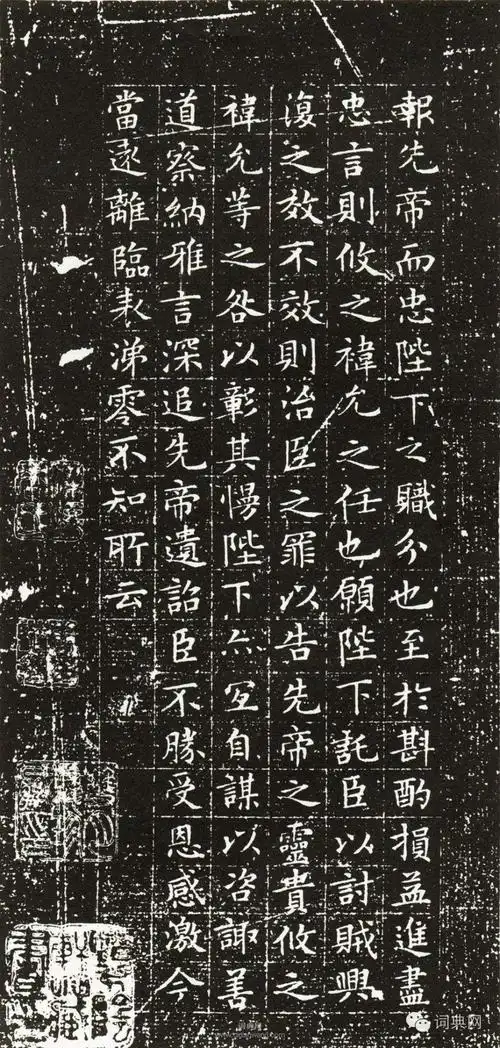 報先帝而忠陛下之職分也至於斟酌損益進盡
忠言則攸之褘允之任也願陛下託臣以討賊興
復之效不效則治臣之罪以告先帝之靈責攸之
褘允等之咎以彰其慢陛下亦宜自謀以咨諏善
道察納雅言深追先帝遺詔臣不勝受恩感激今
當遠離臨表涕零不知所云
词典网